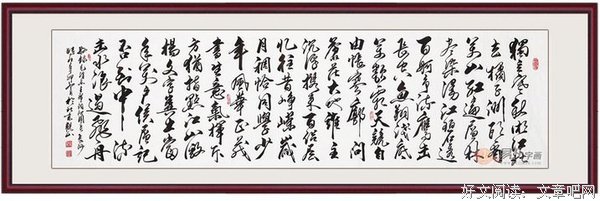 独立寒秋湘江北
去橘子洲头看
万山红遍层林
尽染漫江碧透
百舸争流鹰击
长空鱼翔浅底
万类霜天竞自
由怅寥廓问
苍茫大地谁主
沉浮携来百侣曾
忆往昔峥嵘岁
月稠恰同学少
年风华正茂
书生意气挥斥
方遒指点江山激
扬文字粪土当
年万户侯曾记
否到中流
击水浪遏飞舟
好文阅读：文章吧网